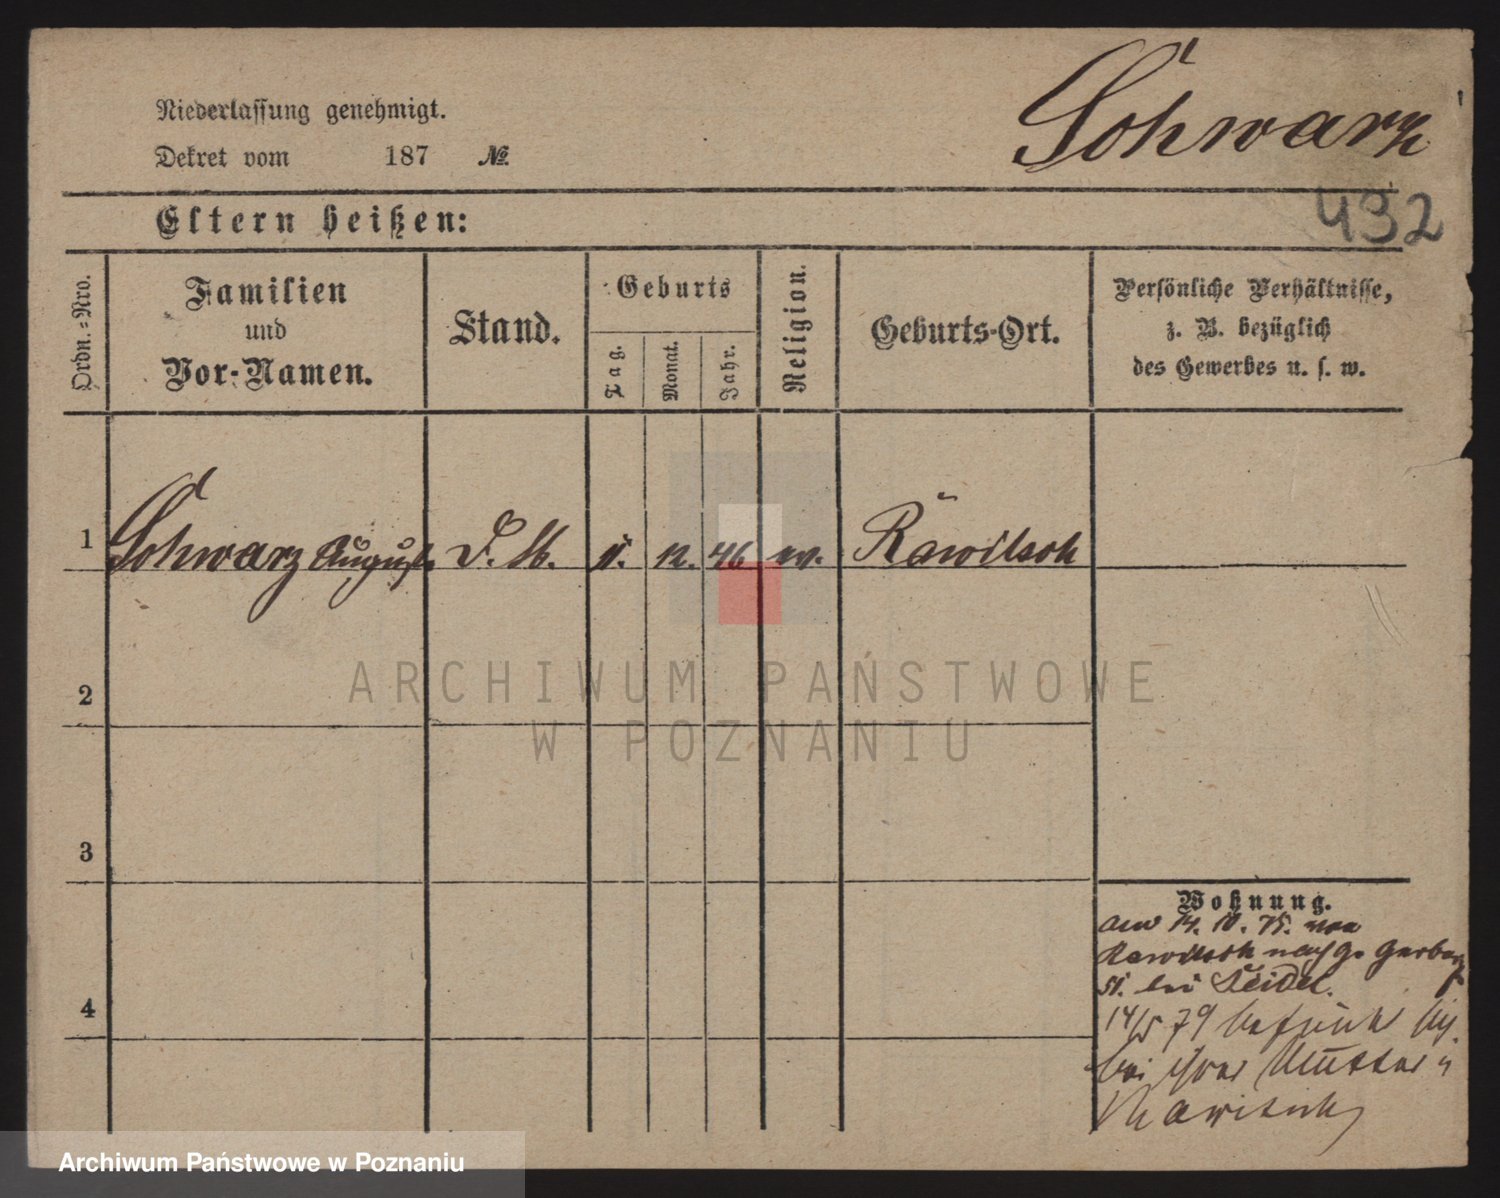 Niederlassung genehmigt.
Dekret vom 187 №
Schwarz
432
Eltern heißen:
Ordn.=Nro.
Familien
und
Vor-Namen.
Stand.
Geburts
Tag.
Monat.
Jahr.
Religion.
Geburts-Ort.
Persönliche Verhältnisse,
z. B. bezüglich
des Gewerbes u. s. w.
1 Schwarz August. D. M. 11. 12. 46 ev. Rawitsch
2
3
4
Wohnung.
am 14. 10. 75. von
Rawitsch nach Gr. Gerber
St. bei Seidel.
14/5 79 besucht
bei ihrer Mutter
Rawitsch
ARCHIWUM PAŃSTWOWE
W POZNANIU
Archiwum Państwowe w Poznaniu